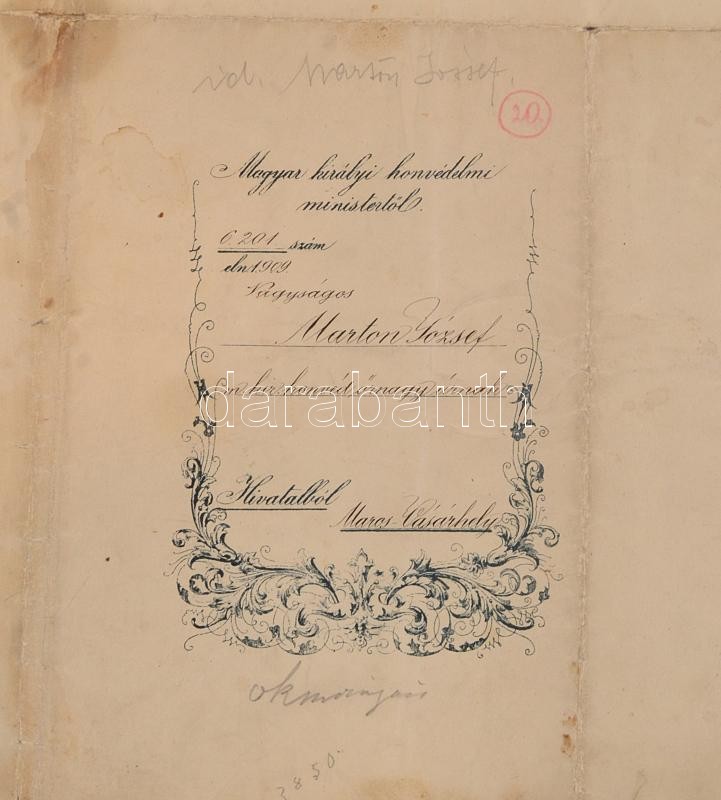 id. Marton József.
20
Magyar királyi honvédelmi
ministertől.
6.201 szám
eln 1909.
Nagyságos
Marton József
m. kir. honvéd őrnagy úrnak
darabanth
Hivatalból
Maros-Vásárhely
okmányai
3850.